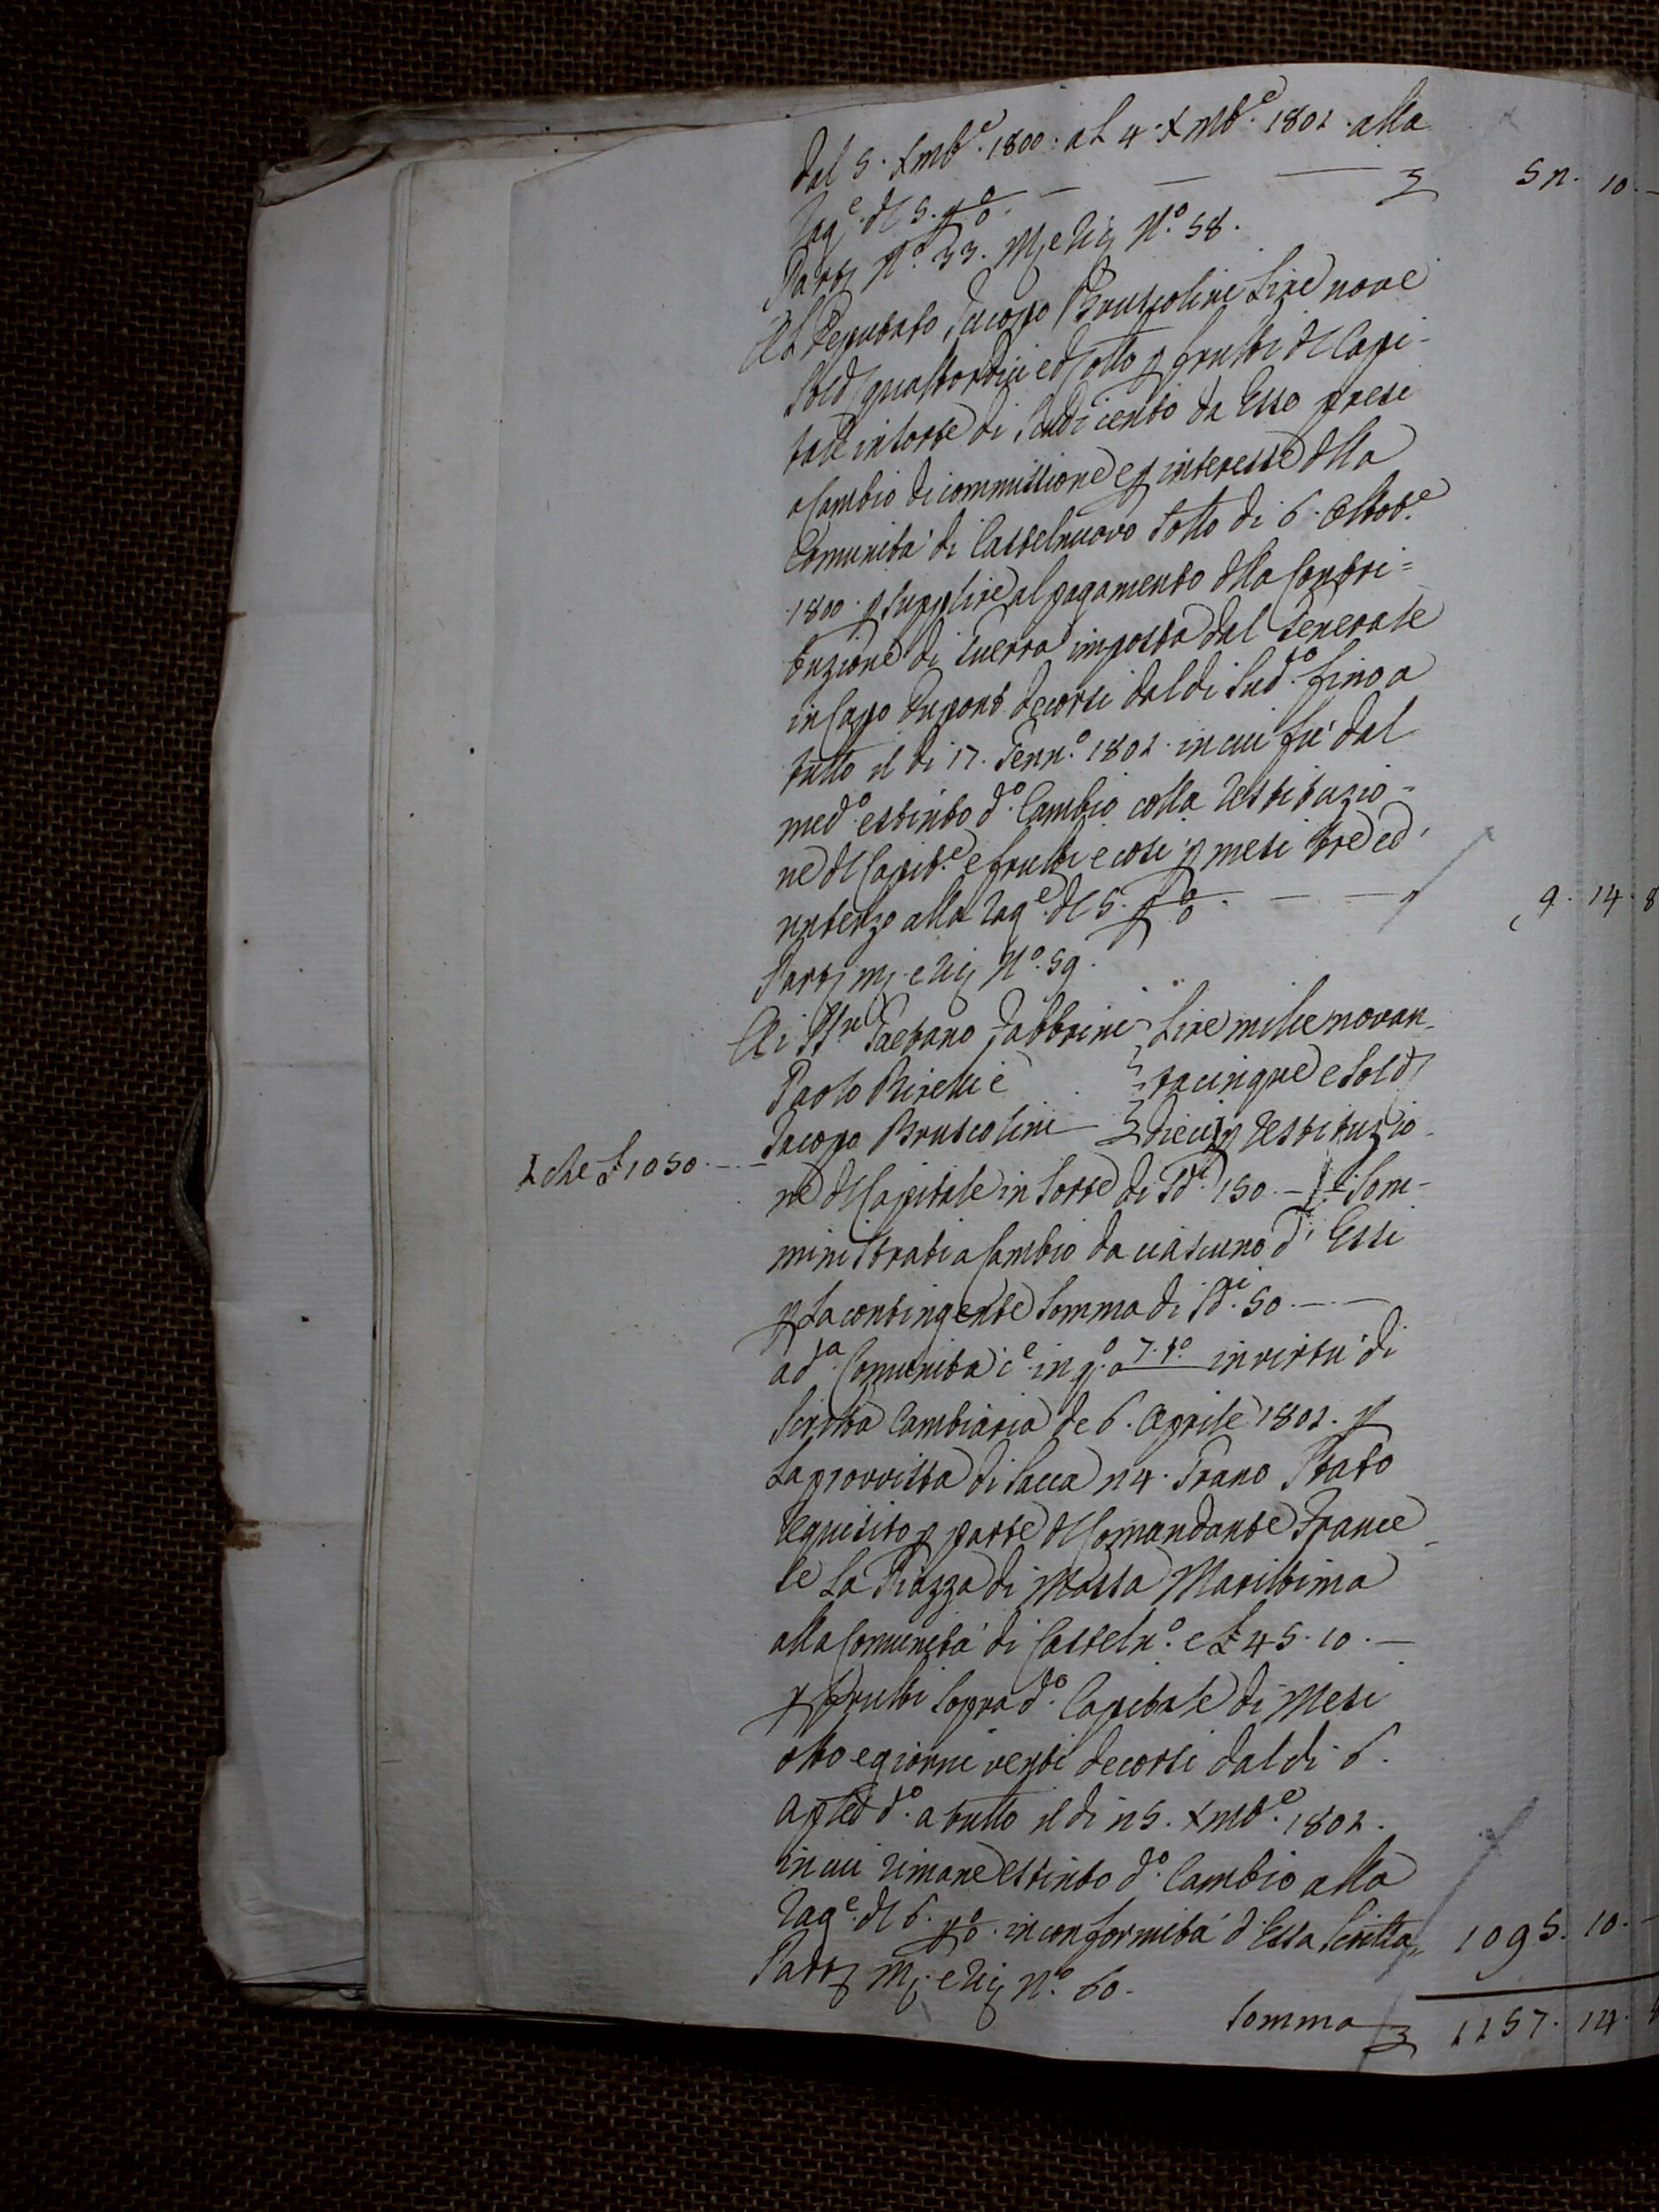 dal 5. Xmb.e 1800. al 4. Xmb.e 1801. alla
Rag.e dl 5. p% — — — 52. 10. —
Parti N.o 33. M e Rig N.o 58.
Al Deputato Jacopo Bruscolini Lire nove
Soldi quattordici ed otto p frutti dl Capi-
tale in Sorte di Scudi cento da Esso presi
a Cambio di commissione e p interesse dlla
Comunità di Castelnuovo sotto di 6. Ottob.e
1800. p supplire al pagamento dlla Contri=
buzione di Guerra imposta dal Generale
in Capo Dupont decorsi dal di Sud.o fino a
tutto il di 17. Genn.o 1801. in cui fù dal
med.o estinto d.o Cambio colla restituzio-
ne dl Capit.e e frutti e così p mesi tre ed
un terzo alla Rag.e dl 5. p% — — 9. 14. 8
Parti M e Rig N.o 59.
Ai SS.ri Gaetano Fabbrini Lire mille novan-
Paolo Birelli e tacinque e Soldi
Jacopo Bruscolini dieci p restituzio-
che £ 1050. — ne dl Capitale in Sorte di Sd.i 150. — Som-
ministrati a Cambio da ciascuno d'Essi
p La contingente Somma di Sd.i 50. —
a d.a Comunità in virtù di
Scritta Cambiaria de 6. Aprile 1801. p
La provvista di Sacca 24. Grano Stato
requisito p parte dl Comandante France-
se La Piazza di Massa Marittima
alla Comunità di Casteln.o e £ 45. 10. —
p frutti Sopra d.o Capitale di Mesi
otto e giorni venti decorsi dal di 6.
Aple d.o a tutto il di 25. Xmb.e 1801.
in cui rimane estinto d.o Cambio alla
Rag.e dl 6. p% in conformità d'Essa Scritta 1095. 10. —
Parti M e Rig N.o 60.
Somma 1157. 14.